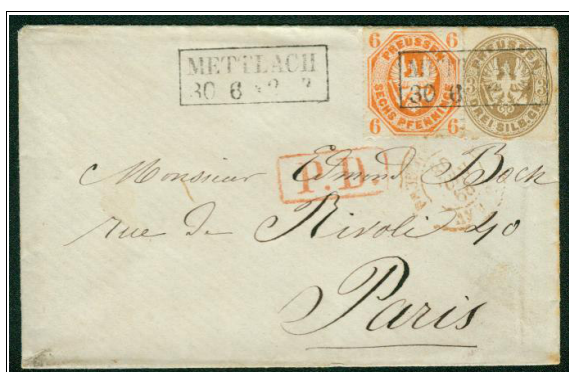 METTLACH
30 6
6 PREUSSEN 6
SECHS PFENNINGE
6 6
PREUSSEN
DREI SILB.GR.
30 6
P.D.
Monsieur Edmund Boch
rue de Rivoli 40
Paris